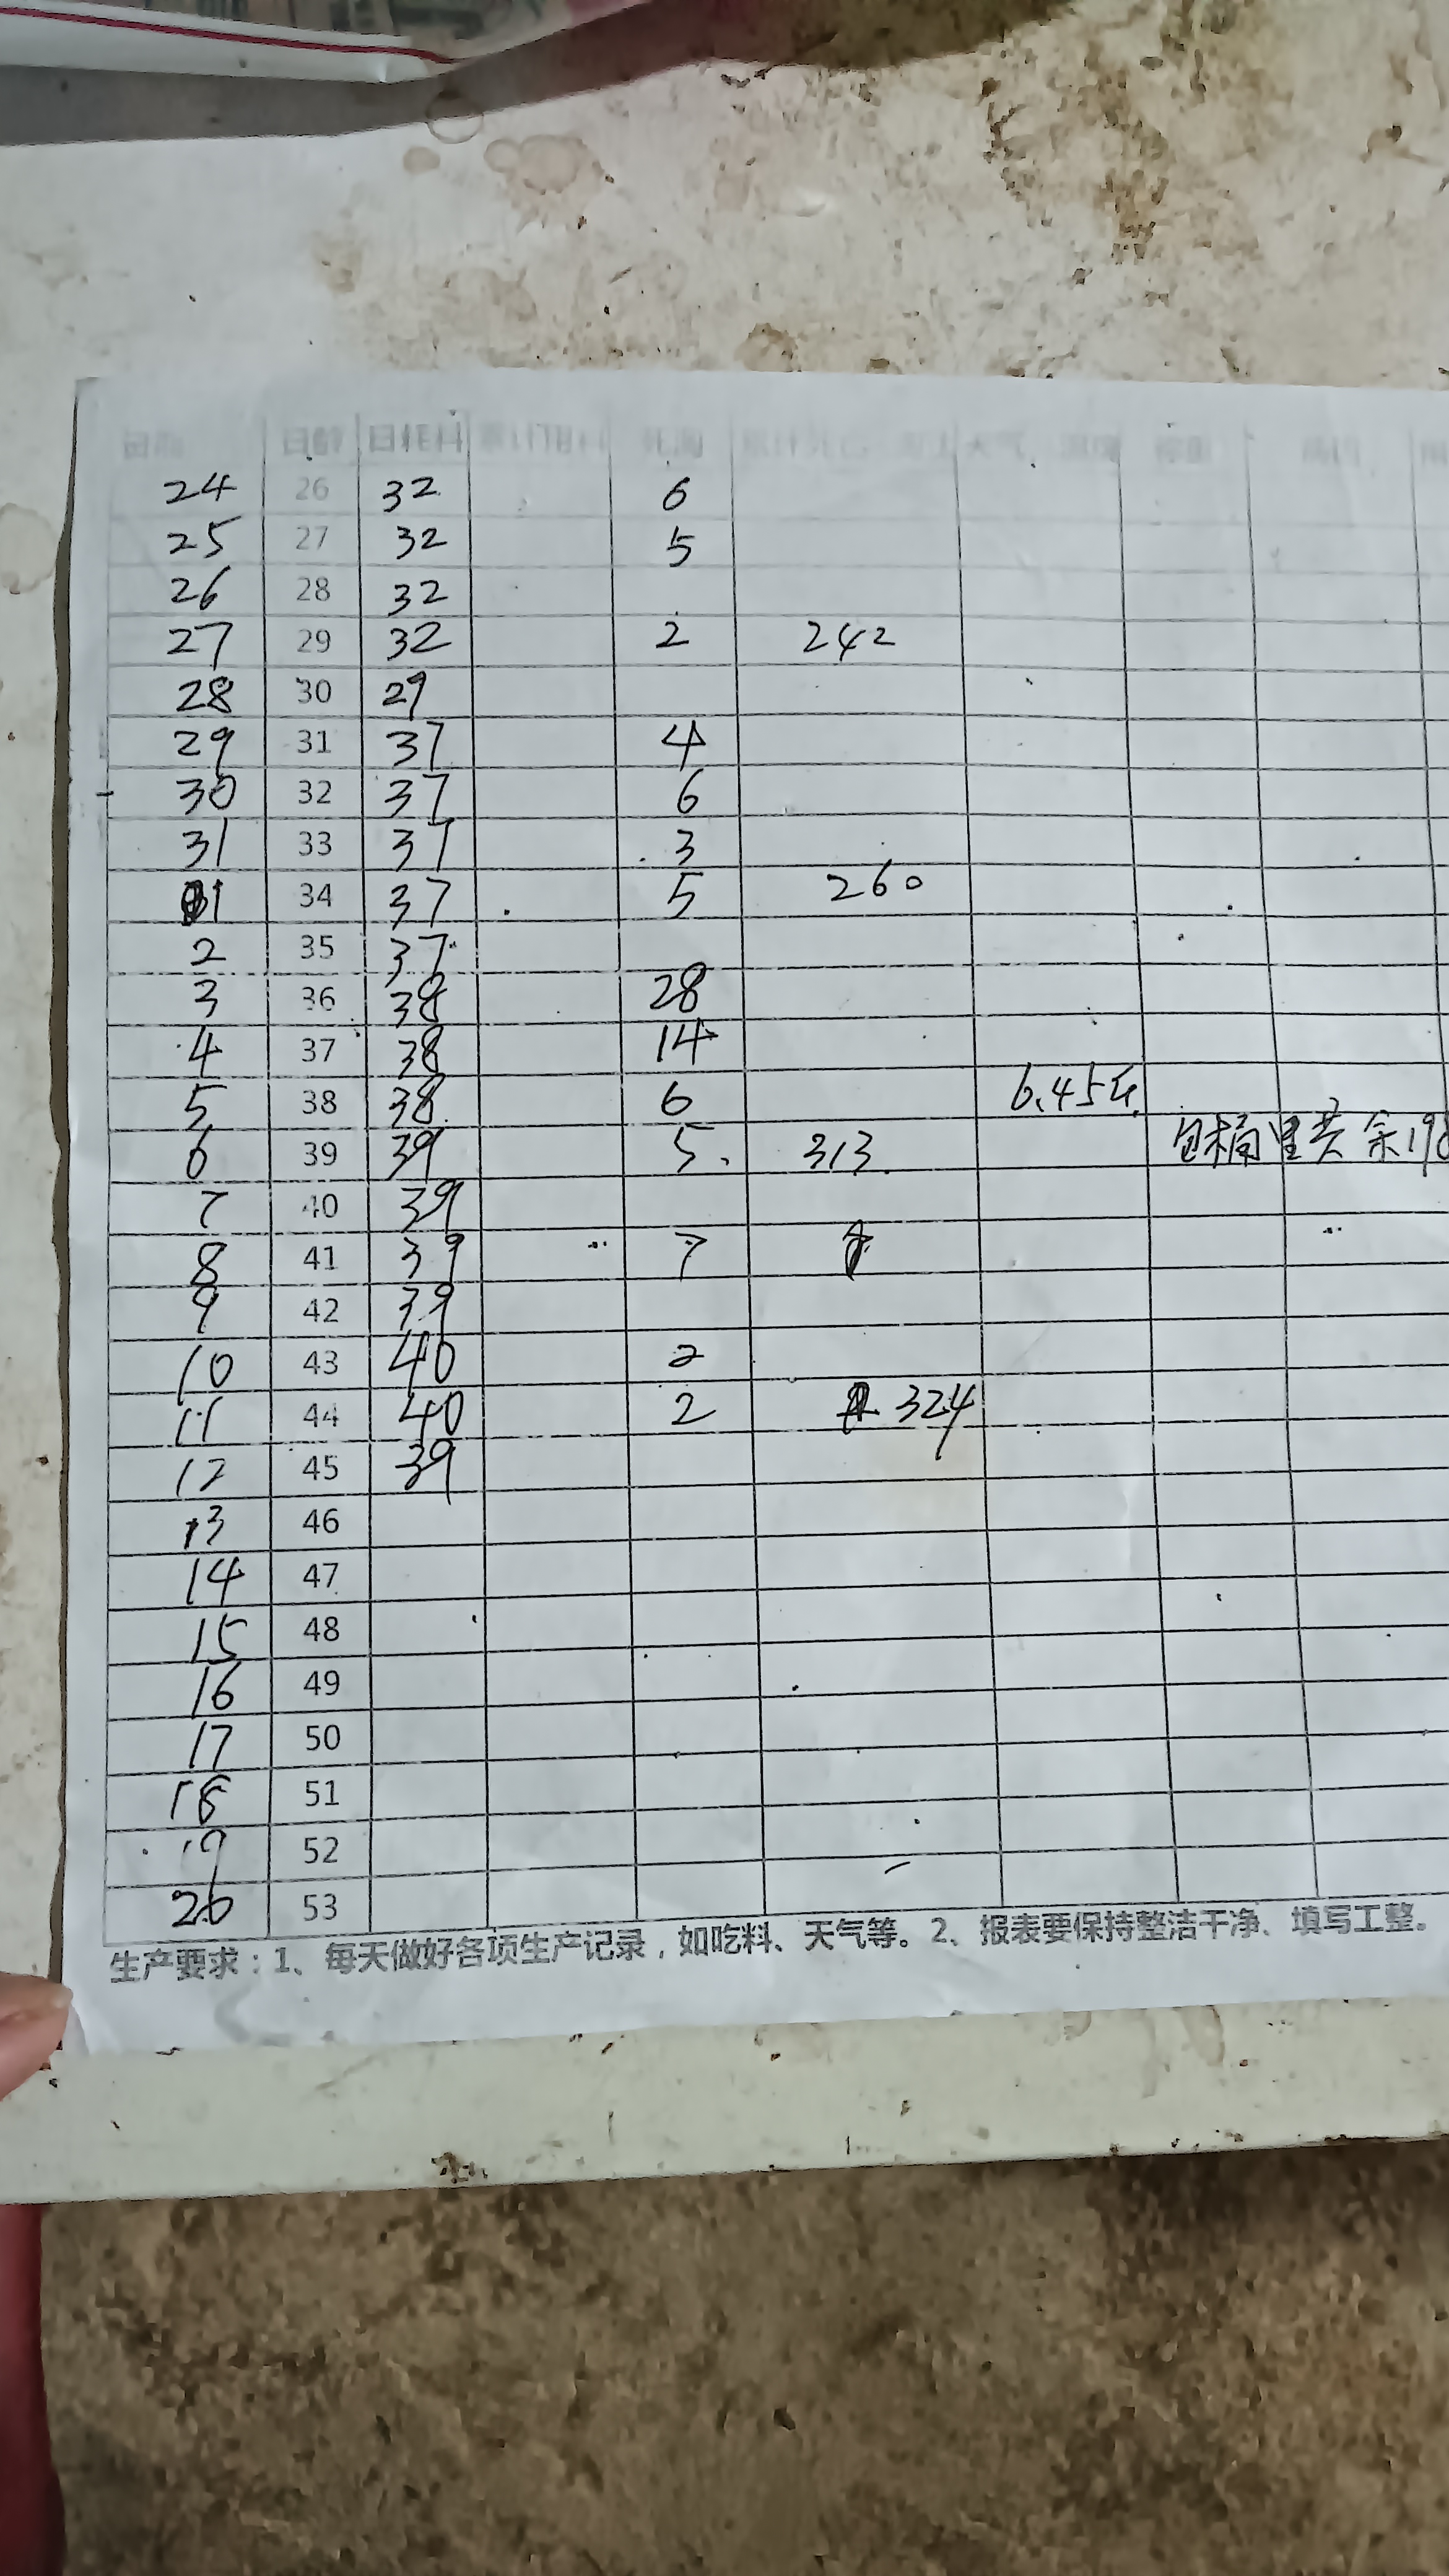 日龄 日耗料
24 26 32 6
25 27 32 5
26 28 32
27 29 32 2 242
28 30 29
29 31 37 4
30 32 37 6
31 33 37 3
1 34 37 5 260
2 35 37
3 36 38 28
4 37 38 14
5 38 38 6 6.45斤
6 39 39 5 313 包桶里共余198
7 40 39
8 41 39 7
9 42 39
10 43 40 2
11 44 40 2 324
12 45 39
13 46
14 47
15 48
16 49
17 50
18 51
19 52
20 53
生产要求：1、每天做好各项生产记录，如吃料、天气等。2、报表要保持整洁干净、填写工整。